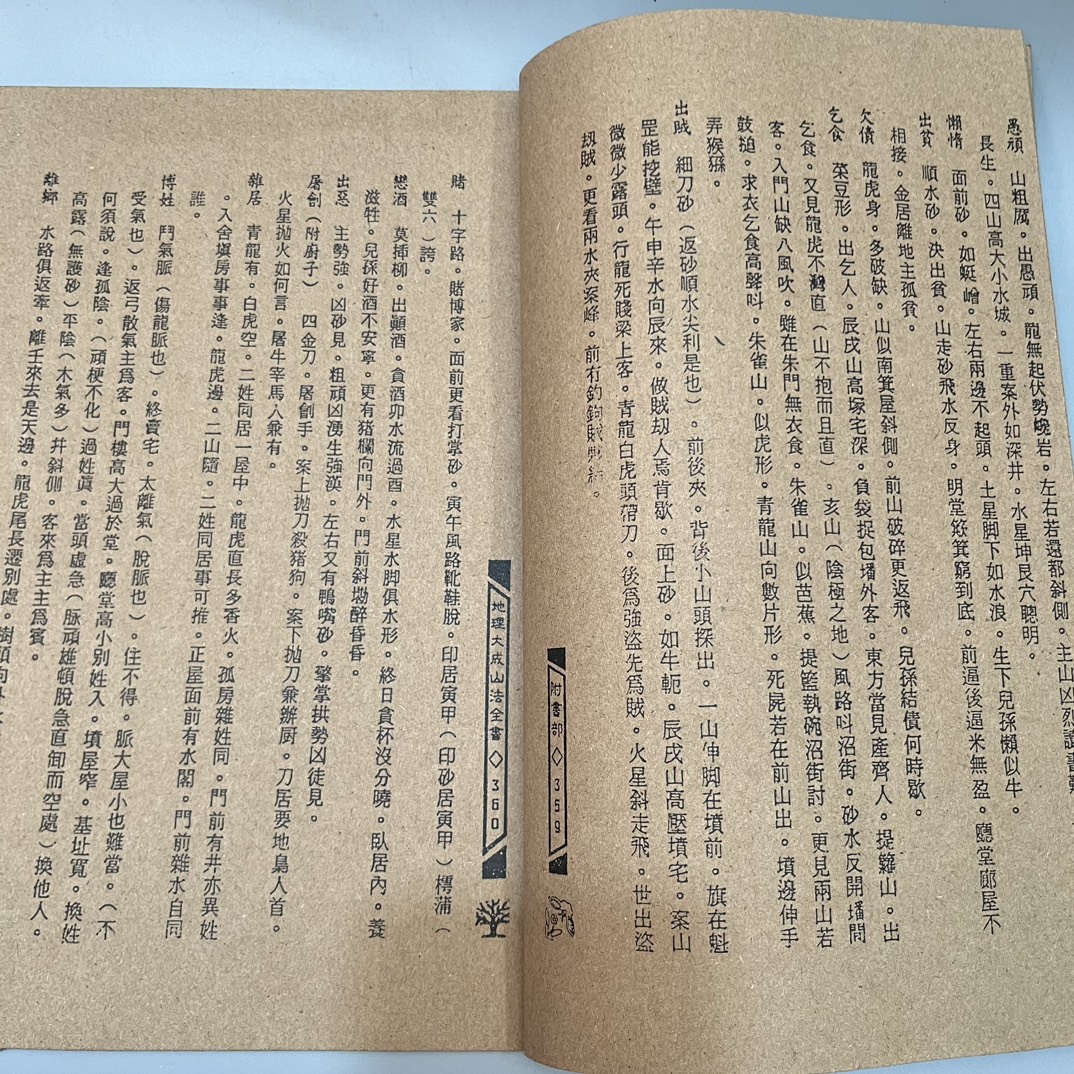 愚頑　山粗属。出愚頑。龍無起伏勢巉岩。左右若還都斜側。主山凶烈讀書難
長生。四山高大小水城。一重案外如深井。水星坤艮穴聰明。
懶惰　面前砂。如蜓。左右兩邊不起頭。土星脚下如水浪。生下兒孫懶似牛。
出貧　順水砂。決出貧。山走砂飛水反身。明堂欬箕窮到底。前逼後逼米無盈。廳堂廊屋不
相接。金居離地主孤貧。
欠債　龍虎身。多破缺。山似南箕屋斜側。前山破碎更返飛。兒孫結債何時歇。
乞食　菜豆形。出乞人。辰戌山高塚宅深。負袋捉包墦外客。東方當見產齊人。提籮山。出
乞食。又見龍虎不灣直（山不抱而且直）。亥山（陰極之地）風路叫沿街。砂水反開墦間
客。入門山缺八風吹。雖在朱門無衣食。朱雀山。似芭蕉。提籃執碗沿街討。更見兩山若
鼓搥。求衣乞食高聲叫。朱雀山。似虎形。青龍山向數片形。死屍若在前山出。墳邊伸手
弄猴猻。
出賊　細刀砂（返砂順水尖利是也）。前後夾。背後小山頭探出。一山伸脚在墳前。旗在魁
罡能挖壁。午申辛水向辰來。做賊刼人焉肯歇。面上砂。如牛軛。辰戌山高壓墳宅。案山
微微少露頭。行龍死賤梁上客。青龍白虎頭帶刀。後爲強盜先爲賊。火星斜走飛。世出盜
刼賊。更看兩水夾案峰。前有釣鉤賊
附書部◇359
地理大成山法全書◇360
賭　十字路。賭博家。面前更看打掌砂。寅午風路靴鞋脫。印居寅甲（印砂居寅甲）樗蒲（
雙六）誇。
戀酒　莫揷柳。出顚酒。貪酒卯水流過酉。水星水脚俱水形。終日貪杯沒分曉。臥居內。養
滋牲。兒孫好酒不安寧。更有猪欄向門外。門前斜塝醉昏昏。
出惡　主勢強。凶砂見。粗頑凶湧生強漢。左右又有鴨嘴砂。擎掌拱勢凶徒見。
屠劊（附廚子）　四金刀。屠劊手。案上抛刀殺猪狗。案下抛刀兼辦厨。刀居要地梟人首。
火星抛火如何言。屠牛宰馬人兼有。
雜居　青龍有。白虎空。二姓同居一屋中。龍虎直長多香火。孤房雜姓同。門前有井亦異姓
。入舍塡房事事逢。龍虎邊。二山隨。二姓同居事可推。正屋面前有水閣。門前雜水自同
誰。
博姓　鬥氣脈（傷龍脈也）。終賣宅。太離氣（脫脈也）。住不得。脈大屋小也難當。（不
受氣也）。返弓散氣主爲客。門樓高大過於堂。廳堂高小別姓入。墳屋窄。基址寬。換姓
何須說。逢孤陰。（頑梗不化）過姓眞。當頭虛急（脈頑雄頓脫急直卸而空處）換他人。
高露（無護砂）平陰（木氣多）幷斜側。客來爲主主爲賓。
離鄉　水路俱返牽。離壬來去是天邊。龍虎尾長遷別處。樹頭向外